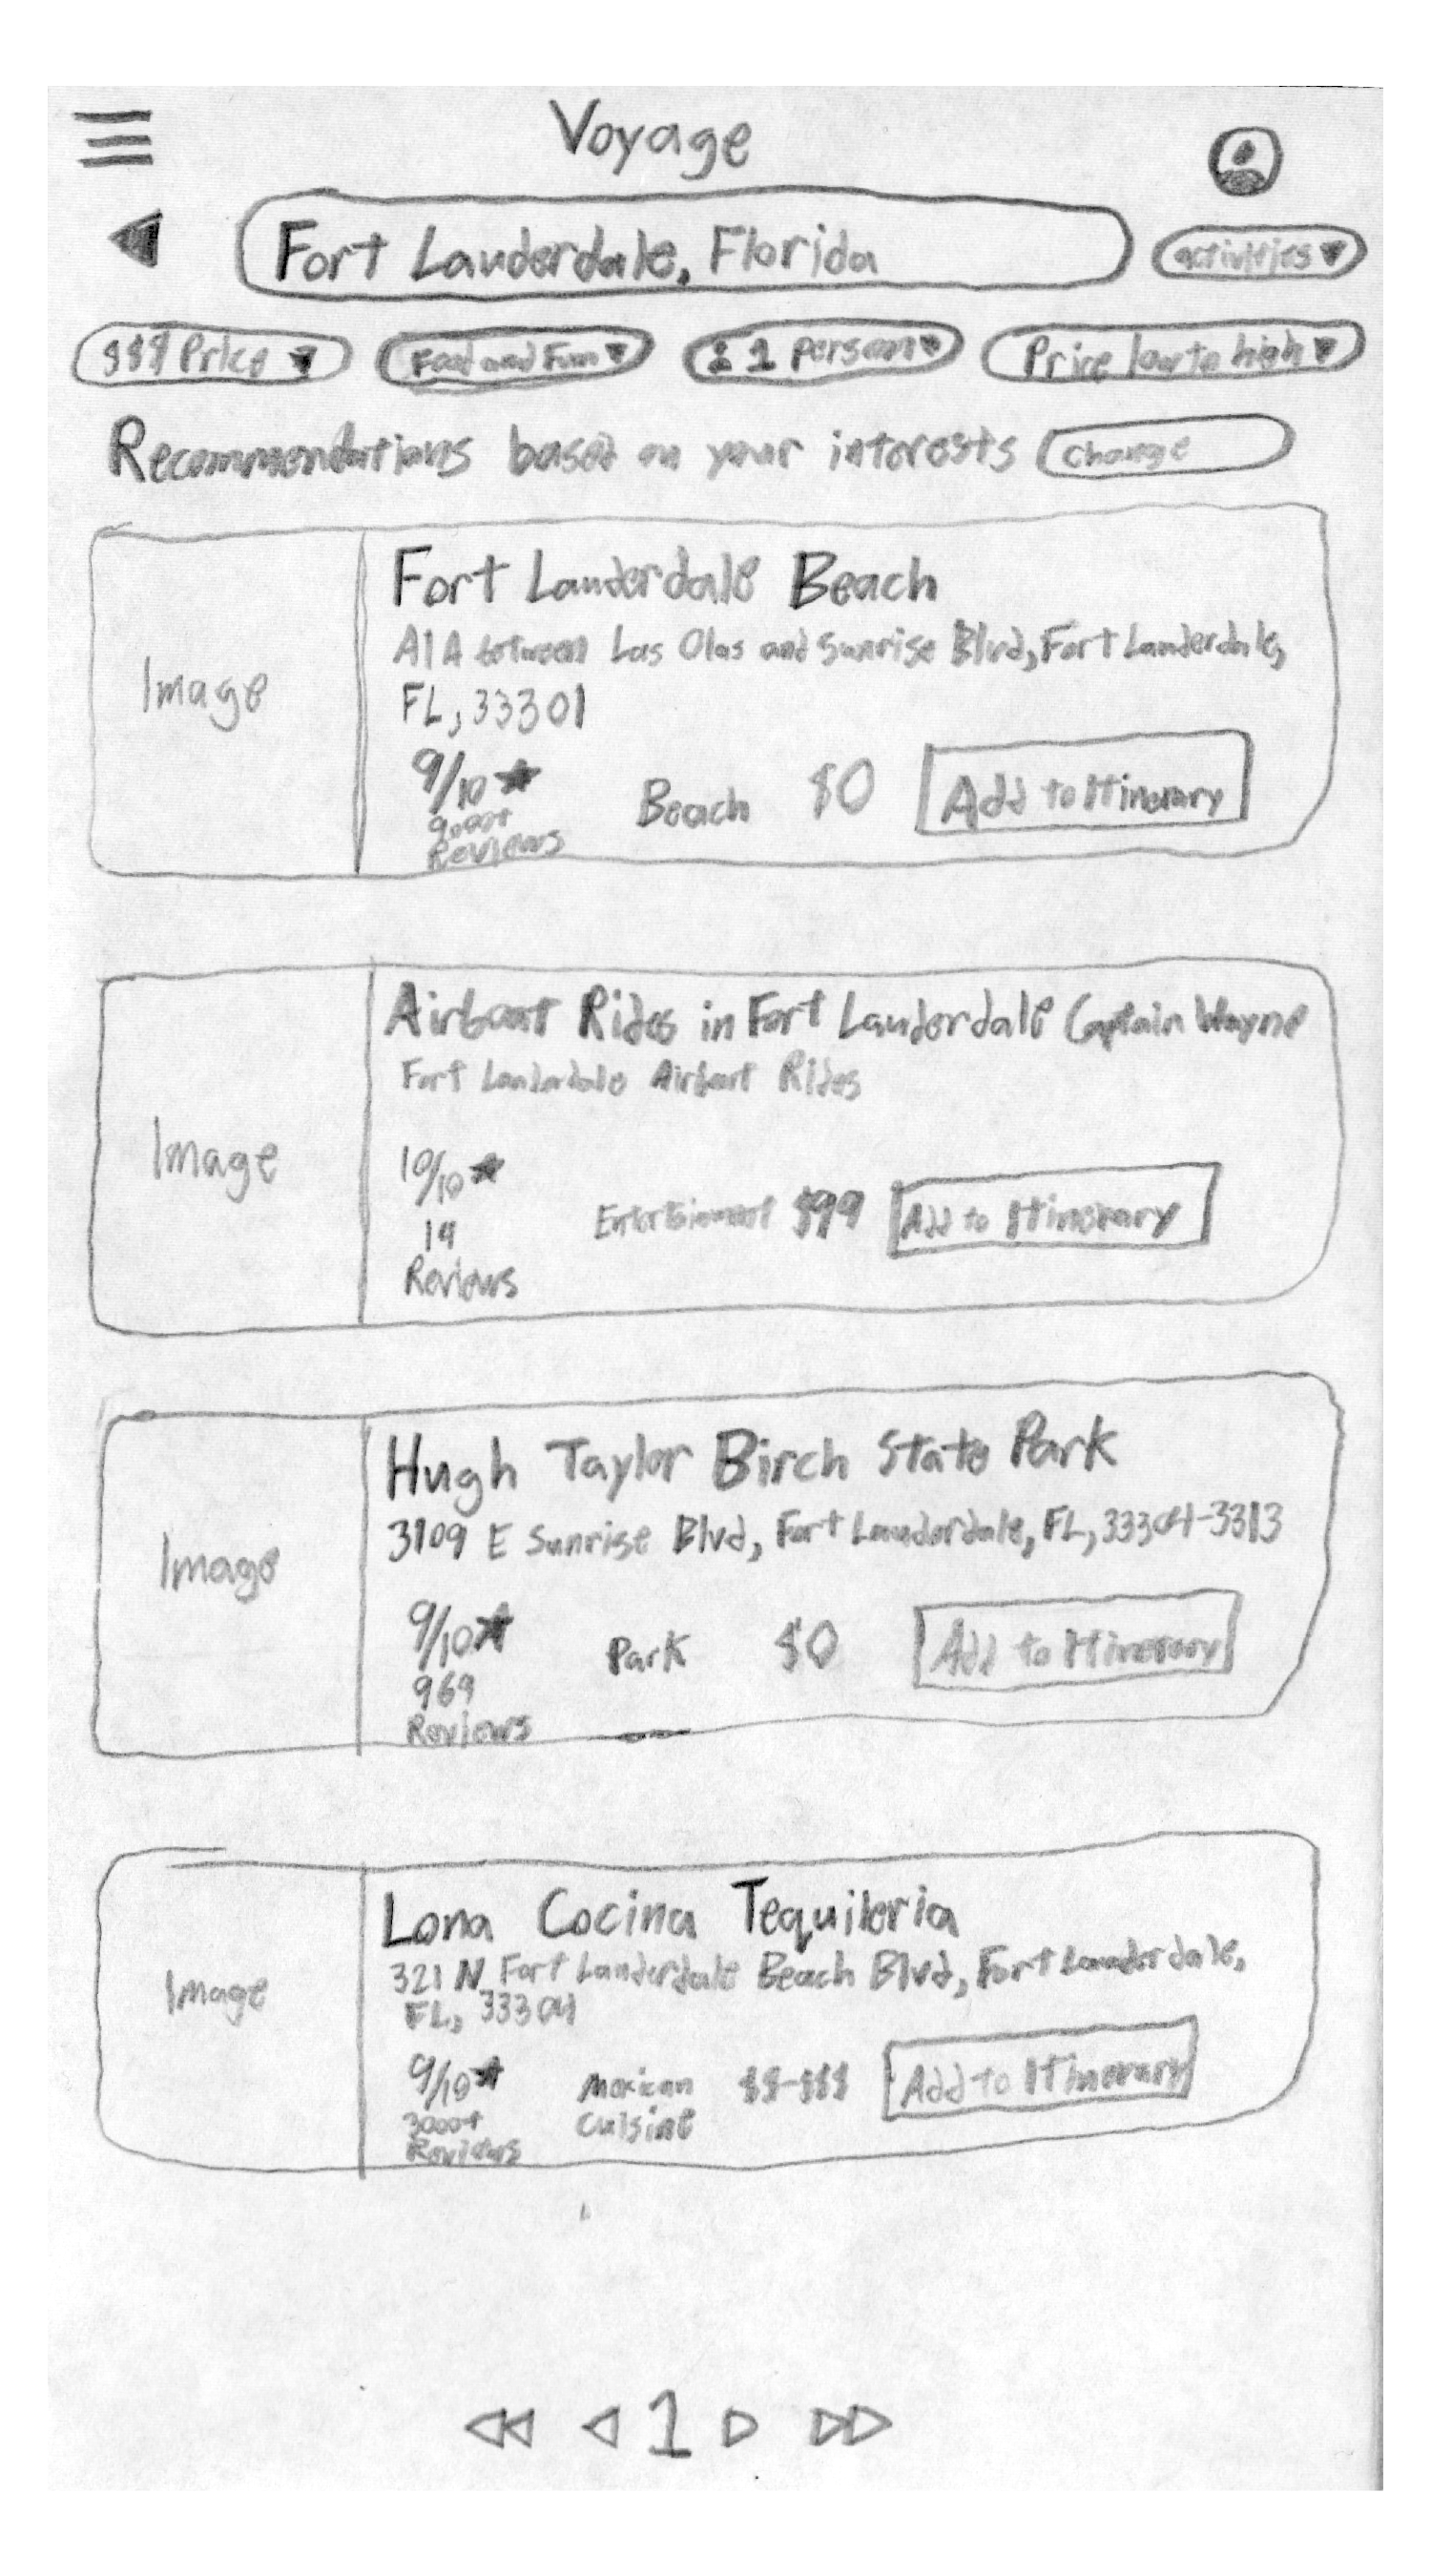 Voyage
Fort Lauderdale, Florida
activities
$$$ Price
Food and Fun
1 person
Price low to high
Recommendations based on your interests
change
Image
Fort Lauderdale Beach
A1A between Las Olas and Sunrise Blvd, Fort Lauderdale,
FL, 33301
9/10 ★
9,000+
Reviews
Beach
$0
Add to Itinerary
Image
Airboat Rides in Fort Lauderdale Captain Wayne
Fort Lauderdale Airboat Rides
10/10 ★
19
Reviews
Entertainment
$99
Add to Itinerary
Image
Hugh Taylor Birch State Park
3109 E Sunrise Blvd, Fort Lauderdale, FL, 33304-3313
9/10 ★
969
Reviews
Park
$0
Add to Itinerary
Image
Lona Cocina Tequileria
321 N Fort Lauderdale Beach Blvd, Fort Lauderdale,
FL, 33304
9/10 ★
3000+
Reviews
Mexican
Cuisine
$$-$$$
Add to Itinerary
1